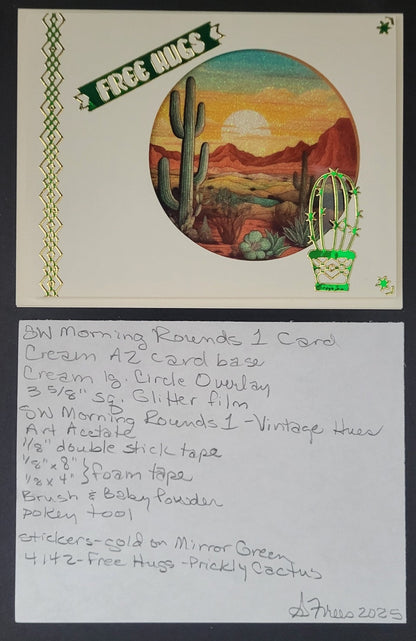 FREE HUGS
SW Morning Rounds 1 Card
Cream A2 card base
Cream lg. Circle Overlay
3 5/8" sq. Glitter film
SW Morning Rounds 1 - Vintage Hues
Art Acetate
1/8" double stick tape
1/8" x 8" } foam tape
1/8 x 4"
Brush & Baby Powder
pokey tool
stickers-gold on Mirror Green
4142-Free Hugs-Prickly Cactus
S Frees 2025